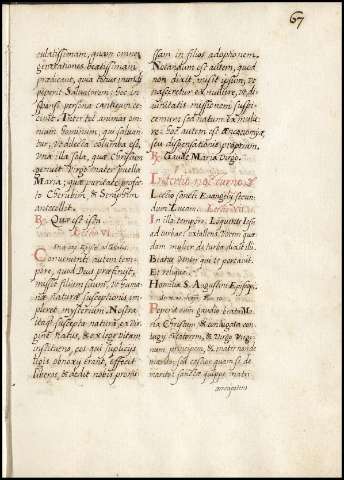 67
culatissimam, quam omnes
generationes beatissimam
prædicant, quia totius mundi
peperit Salvatorem: hoc in
sponsi persona canticum ce-
cinit. Inter tot animas om-
nium hominum, qui salvan-
tur, vocalecta columba est,
una illa sola, quæ Christum
genuit Virgo mater puella
Maria; quæ puritate profe-
cto Cherubim, & Seraphim
antecellit.
℟. Quæ est ista
Lectio VI.
Conveniens autem tem-
pore, quod Deus præfinivit,
misit filium suum, ut huma-
na naturæ susceptionis im-
pleret mysterium. Nostra
itaque suscepta natura ex Vir-
gine natus, & ex lege vitam
instituens, eos qui supplicijs
legis obnoxij erant, effecit
liberos, & dedit nobis promi
ssam in filios adoptionem.
Notandum est autem, quod
non dixit, misit ipsum, ut
nasceretur ex muliere, ne di-
vinitatis missionem suspi-
cemur; sed natum ex mulie-
re: hoc autem est
seu dispensationis proprium.
℟. Gaude Maria Virgo.
In tertio nocturno.
Lectio sancti Evangelij secun-
dum Lucam. Lectio VII.
In illo tempore: Loquente Iesu
ad turbas: extollens vocem quæ-
dam mulier de turba dixit illi:
Beatus venter qui te portavit.
Et reliqua.
Homilia S. Augustini Episcopi.
Peperit cum gaudio beata Ma-
ria Christum, & conjugata con-
tingit æternum, & Virgo Virgi-
num principem, & mater non de
marito; sed castior quam si de
marito: sanctæ quippe matri